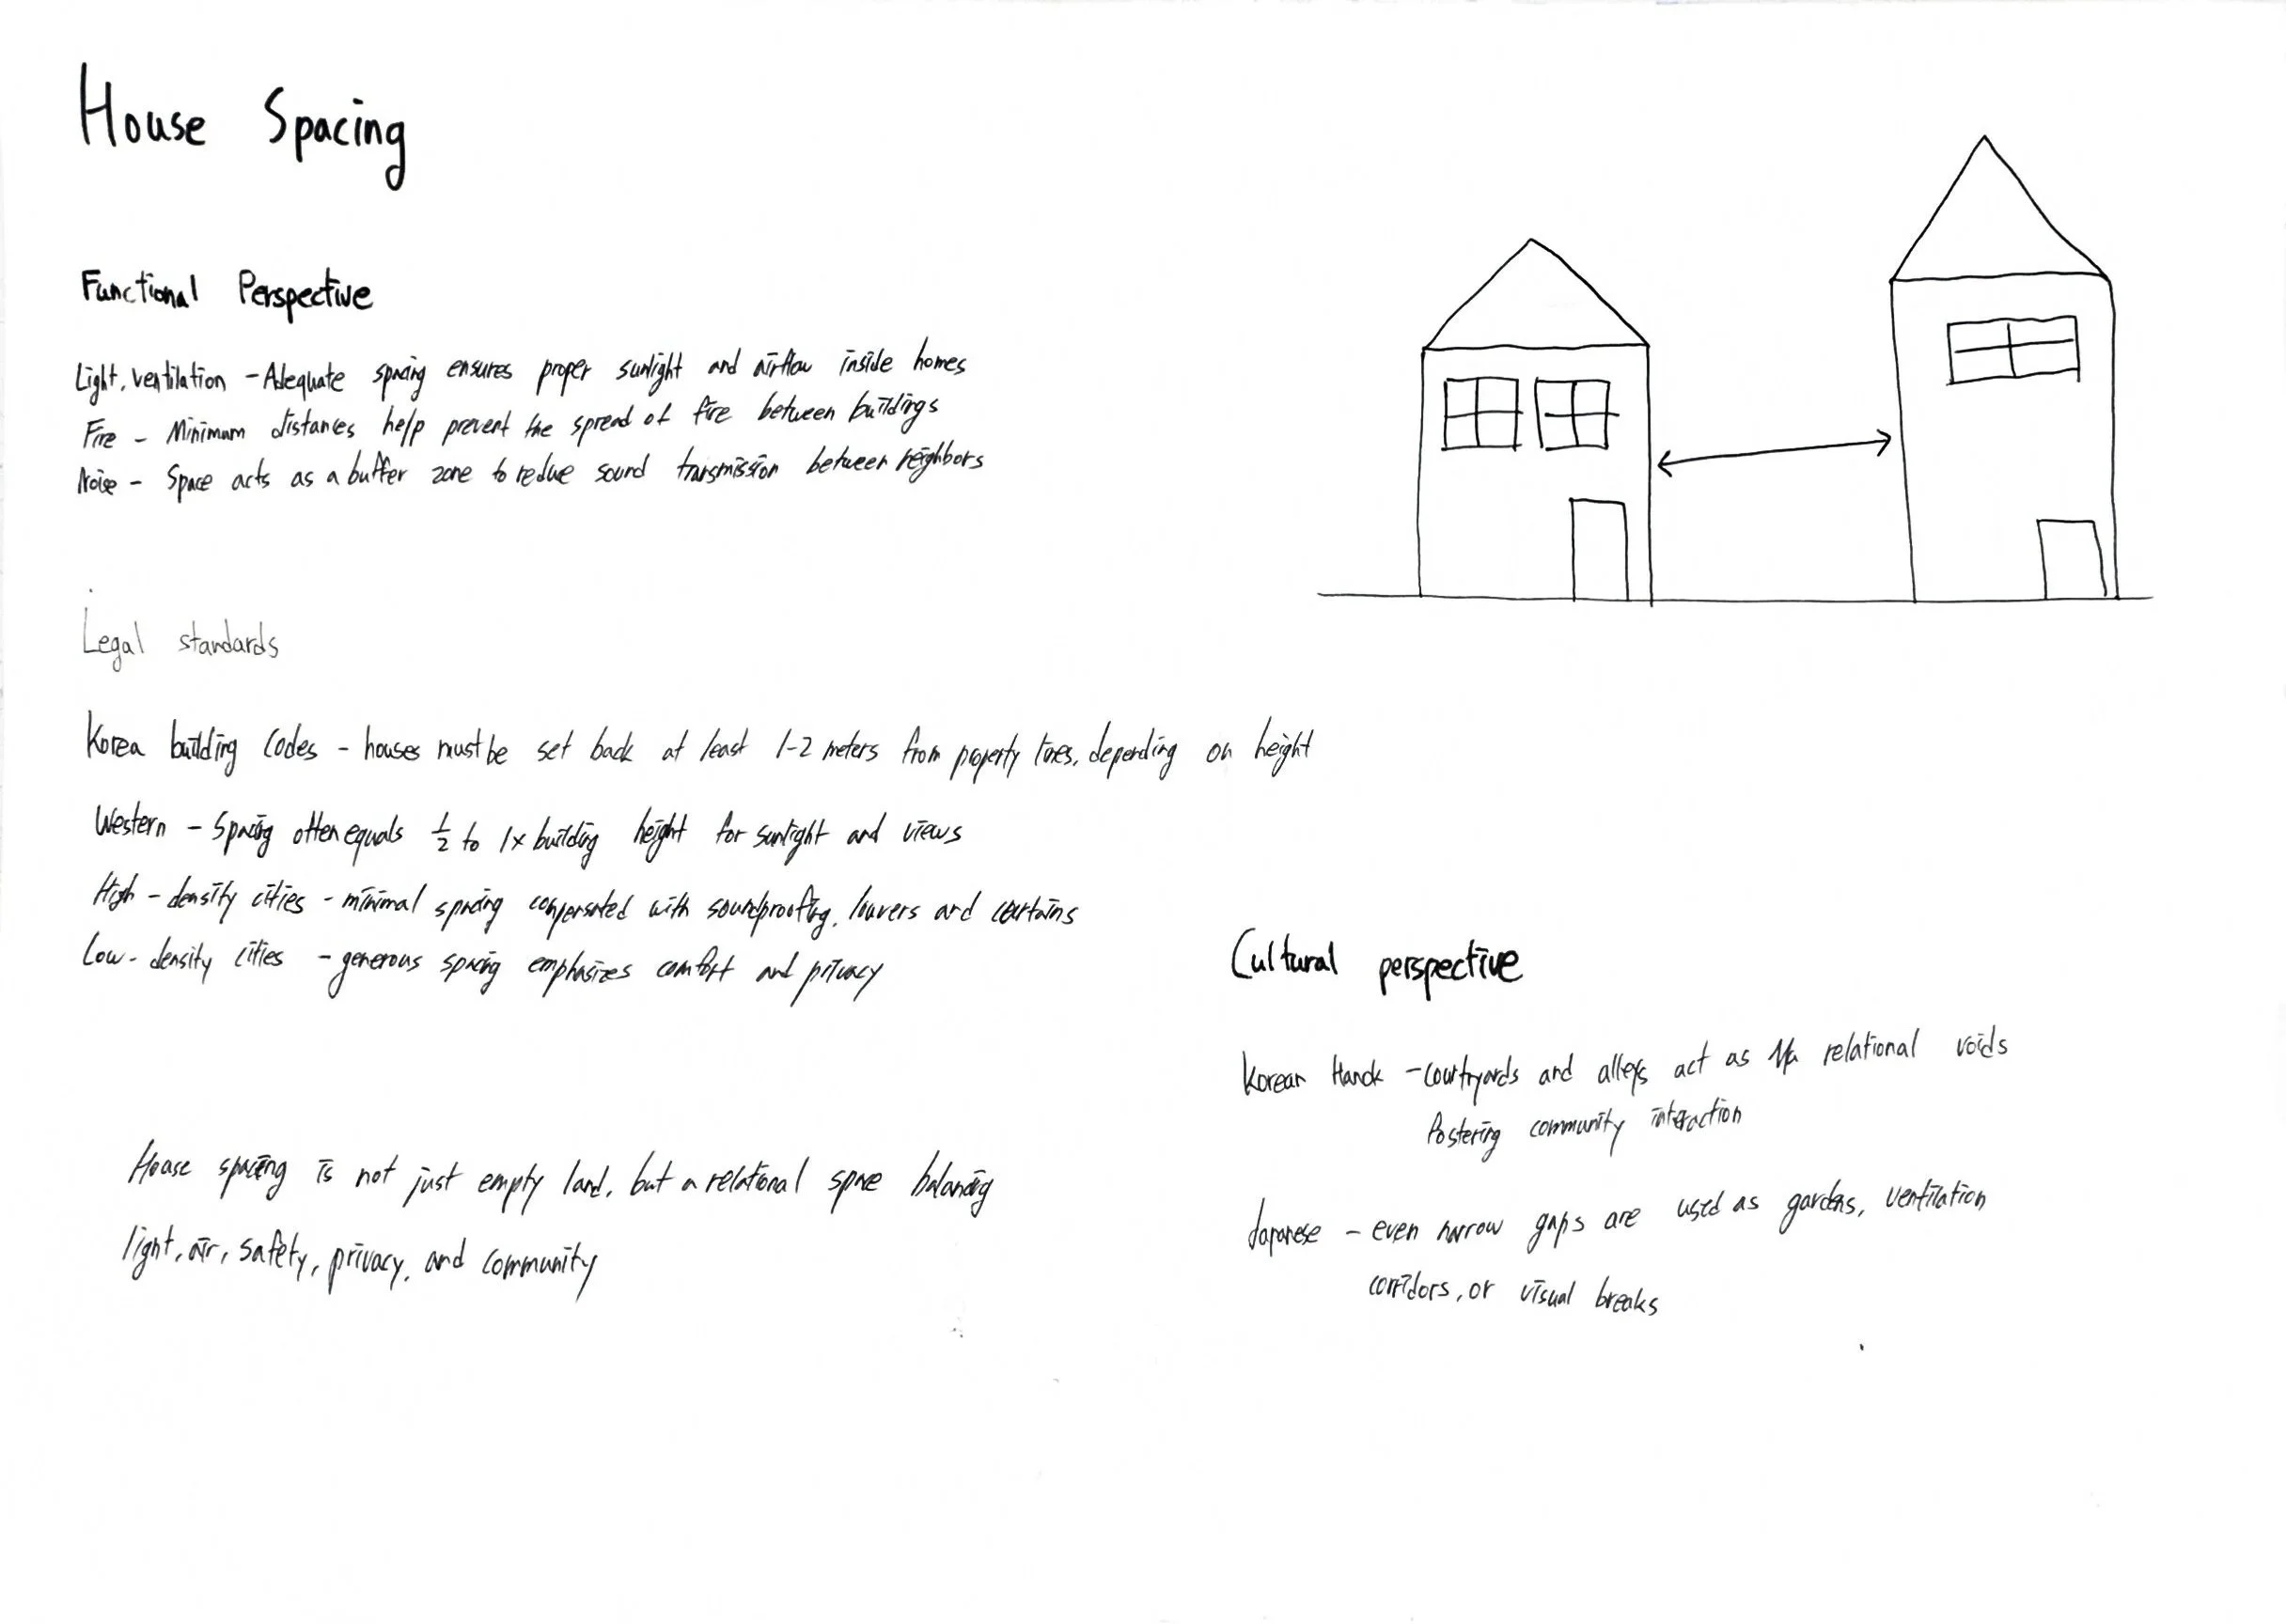 House Spacing
Functional Perspective
Light, ventilation - Adequate spacing ensures proper sunlight and airflow inside homes
Fire - Minimum distances help prevent the spread of fire between buildings
Noise - Space acts as a buffer zone to reduce sound transmission between neighbors
Legal standards
Korea building codes - houses must be set back at least 1-2 meters from property lines, depending on height
Western - Spacing often equals ½ to 1x building height for sunlight and views
High-density cities - minimal spacing compensated with soundproofing, louvers and curtains
Low-density cities - generous spacing emphasizes comfort and privacy
House spacing is not just empty land, but a relational space balancing
light, air, safety, privacy, and community
Cultural perspective
Korean Hanok - courtyards and alleys act as Ma relational voids
Fostering community interaction
Japanese - even narrow gaps are used as gardens, ventilation
corridors, or visual breaks